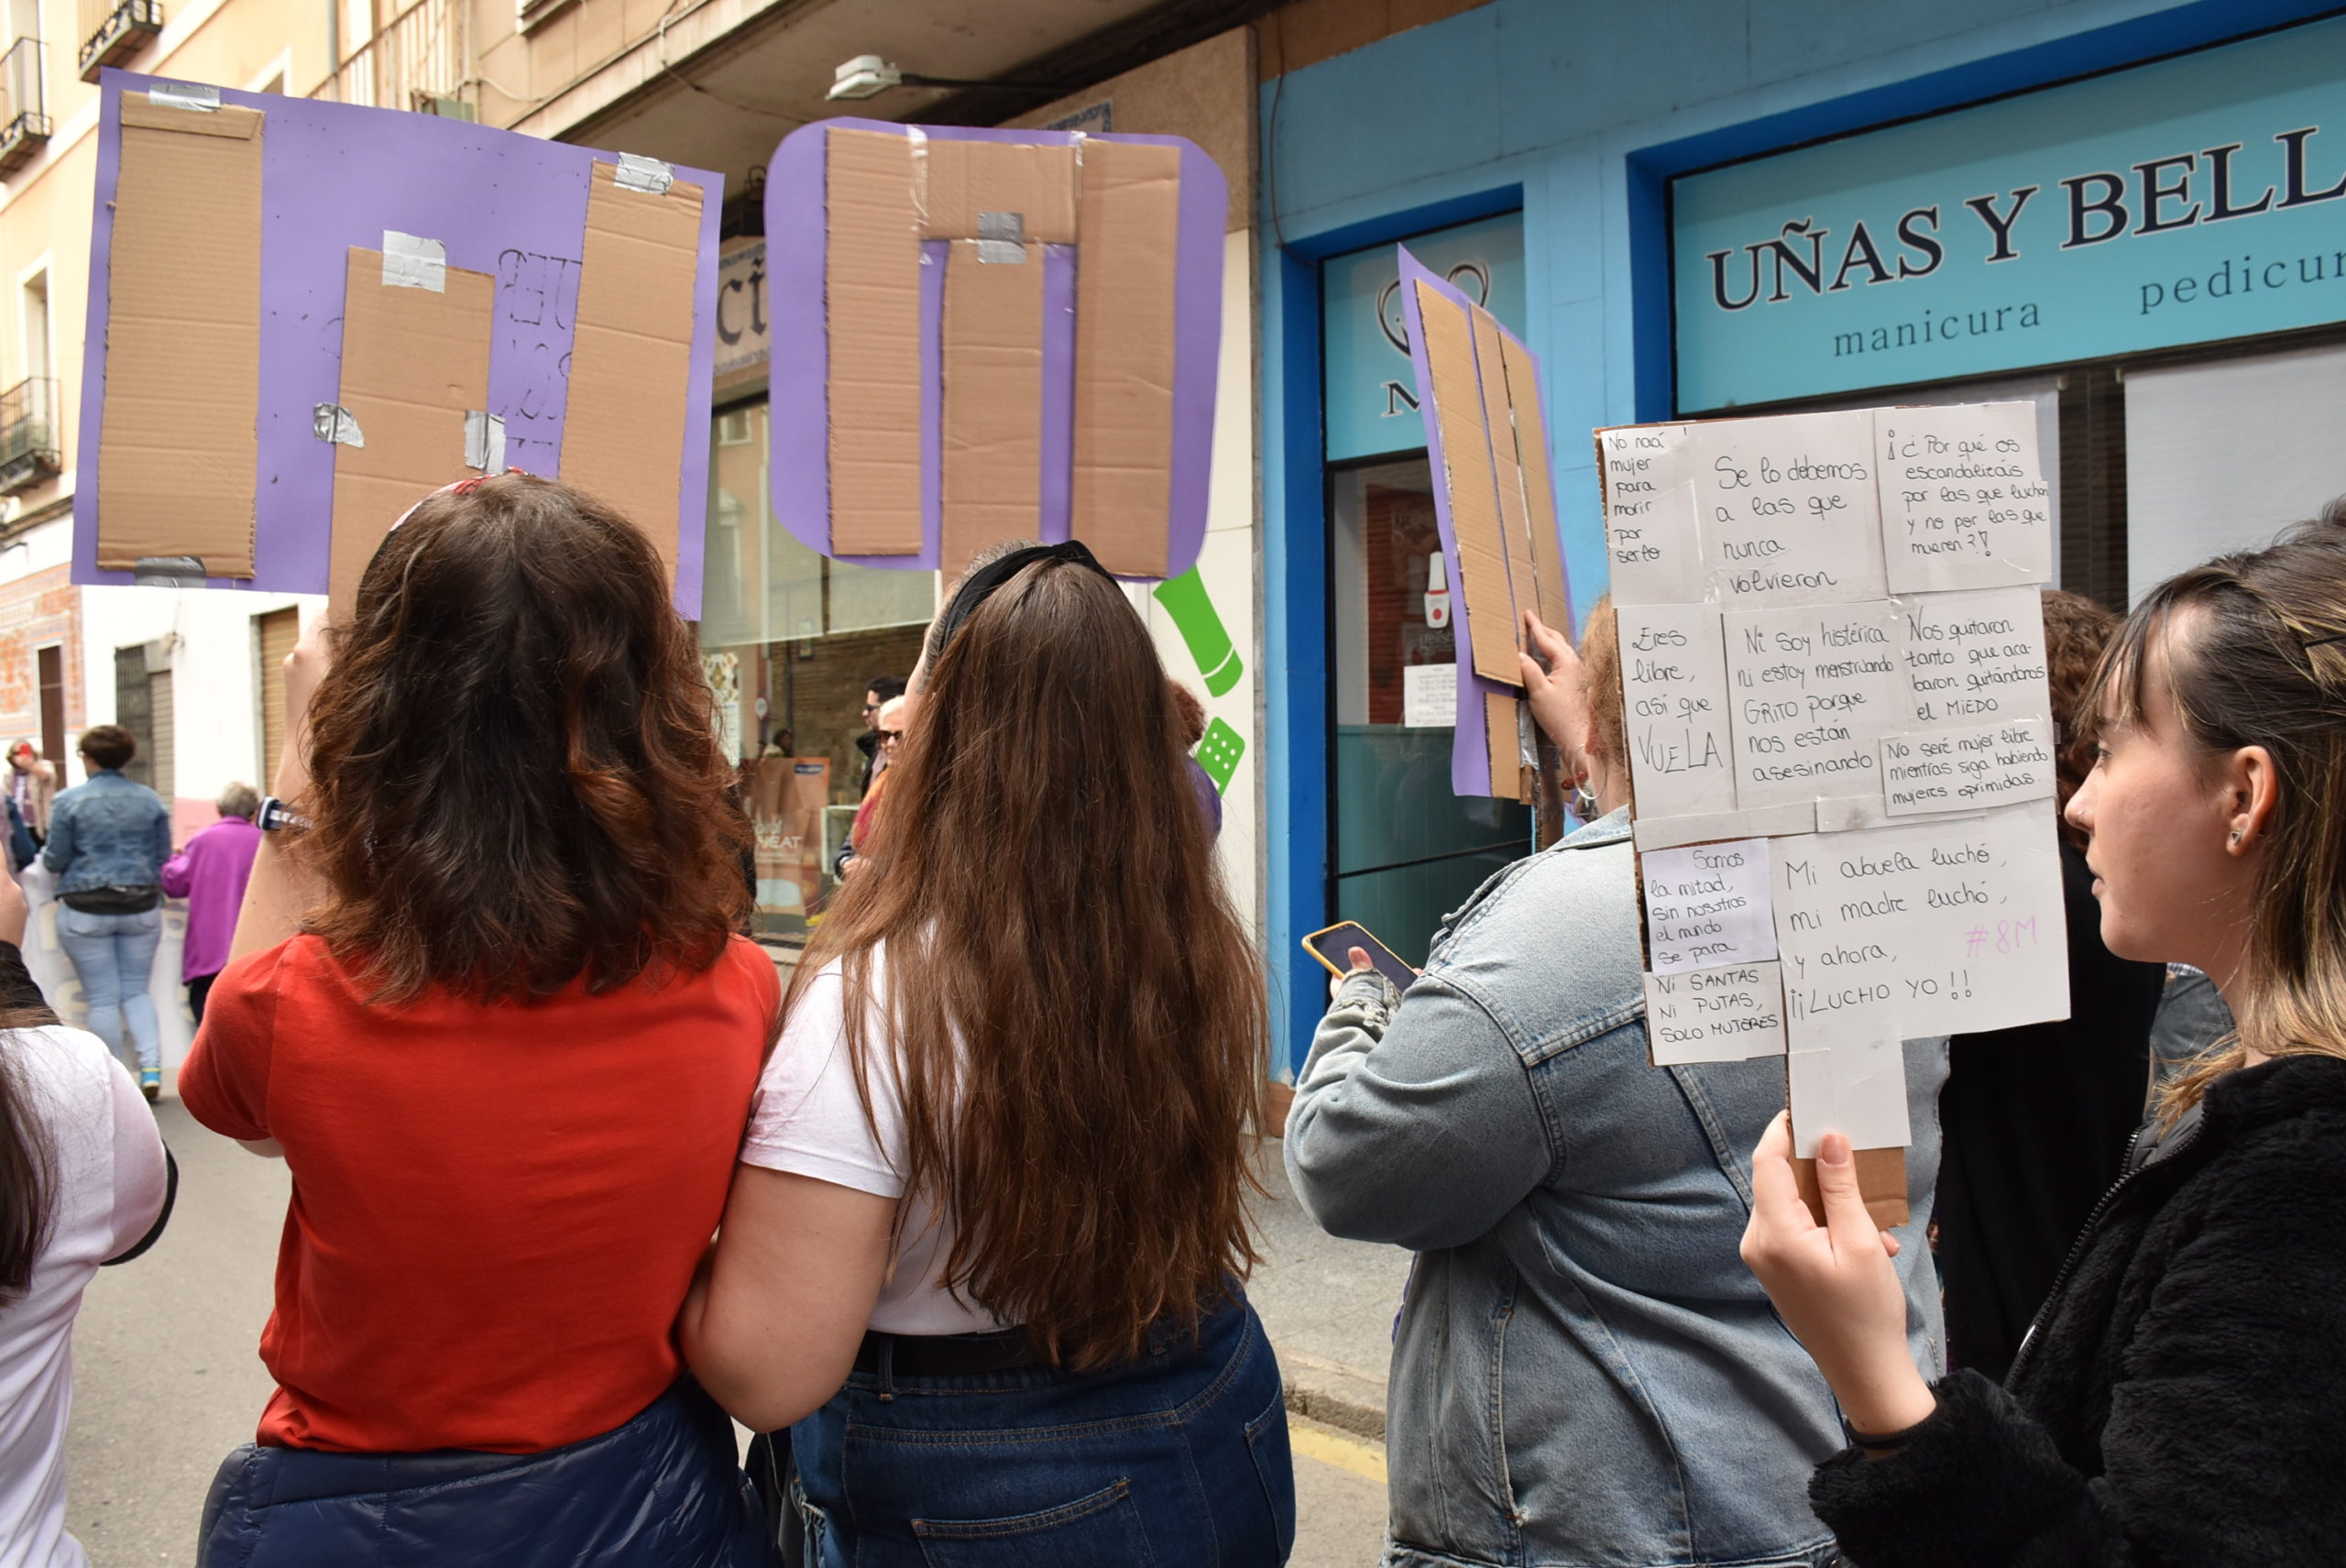 UÑAS Y BELL
manicura pedicur
ci
No nací
mujer
para
morir
por
serlo
Se lo debemos
a las que
nunca
volvieron
¡¿Por qué os
escandalizáis
por las que luchan
y no por las que
mueren?!
Eres
libre,
así que
VUELA
Ni soy histérica
ni estoy menstruando
GRITO porque
nos están
asesinando
Nos quitaron
tanto que aca-
baron quitándonos
el MIEDO
No seré mujer libre
mientras siga habiendo
mujeres oprimidas
Somos
la mitad,
sin nosotras
el mundo
se para
Ni SANTAS
Ni PUTAS,
SOLO MUJERES
Mi abuela luchó,
mi madre luchó,
y ahora,
¡¡LUCHO YO!!
#8M